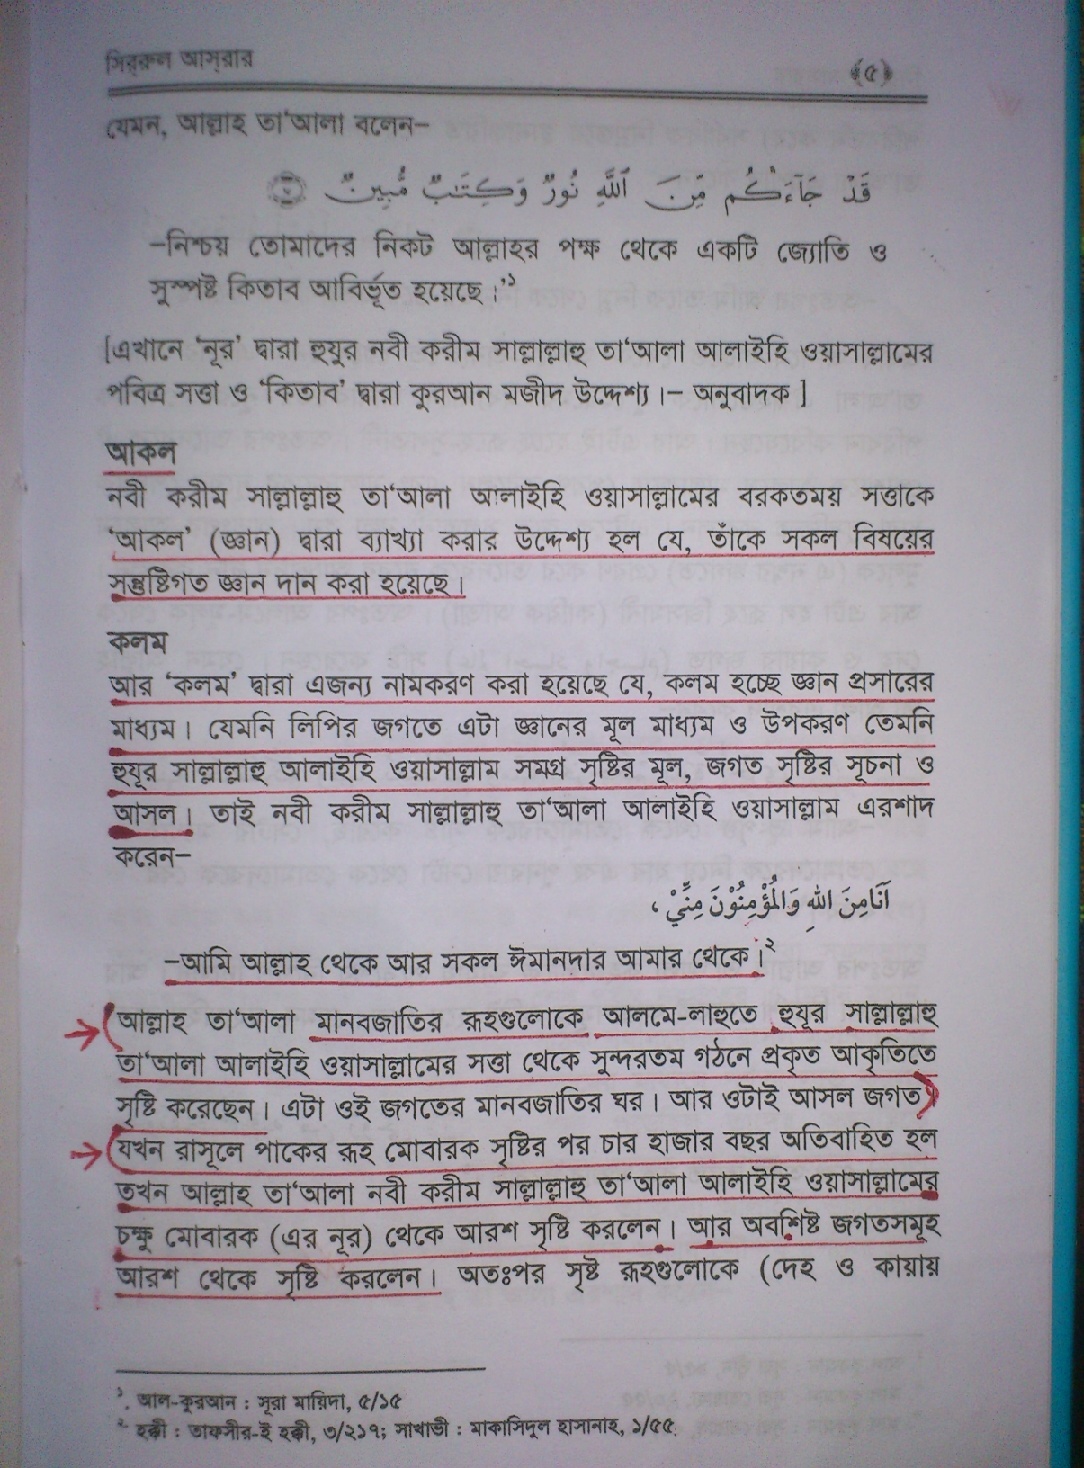 সিররুল আসরার
(৫)
যেমন, আল্লাহ তা‘আলা বলেন–
قَدْ جَآءَكُم مِّنَ ٱللَّهِ نُورٌ وَكِتَٰبٌ مُّبِينٌ
–নিশ্চয় তোমাদের নিকট আল্লাহর পক্ষ থেকে একটি জ্যোতি ও
সুস্পষ্ট কিতাব আবির্ভূত হয়েছে।’১
[এখানে ‘নূর’ দ্বারা হুযুর নবী করীম সাল্লাল্লাহু তা‘আলা আলাইহি ওয়াসাল্লামের
পবিত্র সত্তা ও ‘কিতাব’ দ্বারা কুরআন মজীদ উদ্দেশ্য।– অনুবাদক]
আকল
নবী করীম সাল্লাল্লাহু তা‘আলা আলাইহি ওয়াসাল্লামের বরকতময় সত্তাকে
‘আকল’ (জ্ঞান) দ্বারা ব্যাখ্যা করার উদ্দেশ্য হল যে, তাঁকে সকল বিষয়ের
সন্তুষ্টিগত জ্ঞান দান করা হয়েছে।
কলম
আর ‘কলম’ দ্বারা এজন্য নামকরণ করা হয়েছে যে, কলম হচ্ছে জ্ঞান প্রসারের
মাধ্যম। যেমনি লিপির জগতে এটা জ্ঞানের মূল মাধ্যম ও উপকরণ তেমনি
হুযুর সাল্লাল্লাহু আলাইহি ওয়াসাল্লাম সমগ্র সৃষ্টির মূল, জগত সৃষ্টির সূচনা ও
আসল। তাই নবী করীম সাল্লাল্লাহু তা‘আলা আলাইহি ওয়াসাল্লাম এরশাদ
করেন–
اَنَا مِنَ اللهِ وَالْمُؤْمِنُوْنَ مِنِّيْ ،
–আমি আল্লাহ থেকে আর সকল ঈমানদার আমার থেকে।২
আল্লাহ তা‘আলা মানবজাতির রূহগুলোকে আলমে-লাহুতে হুযূর সাল্লাল্লাহু
তা‘আলা আলাইহি ওয়াসাল্লামের সত্তা থেকে সুন্দরতম গঠনে প্রকৃত আকৃতিতে
সৃষ্টি করেছেন। এটা ওই জগতের মানবজাতির ঘর। আর ওটাই আসল জগত
যখন রাসূলে পাকের রূহ মোবারক সৃষ্টির পর চার হাজার বছর অতিবাহিত হল
তখন আল্লাহ তা‘আলা নবী করীম সাল্লাল্লাহু তা‘আলা আলাইহি ওয়াসাল্লামের
চক্ষু মোবারক (এর নূর) থেকে আরশ সৃষ্টি করলেন। আর অবশিষ্ট জগতসমূহ
আরশ থেকে সৃষ্টি করলেন। অতঃপর সৃষ্ট রূহগুলোকে (দেহ ও কায়ায়
১. আল-কুরআন : সূরা মায়িদা, ৫/১৫
২ হক্কী : তাফসীর-ই হক্কী, ৩/২১৭; সাখাভী : মাকাসিদুল হাসানাহ, ১/৫৫